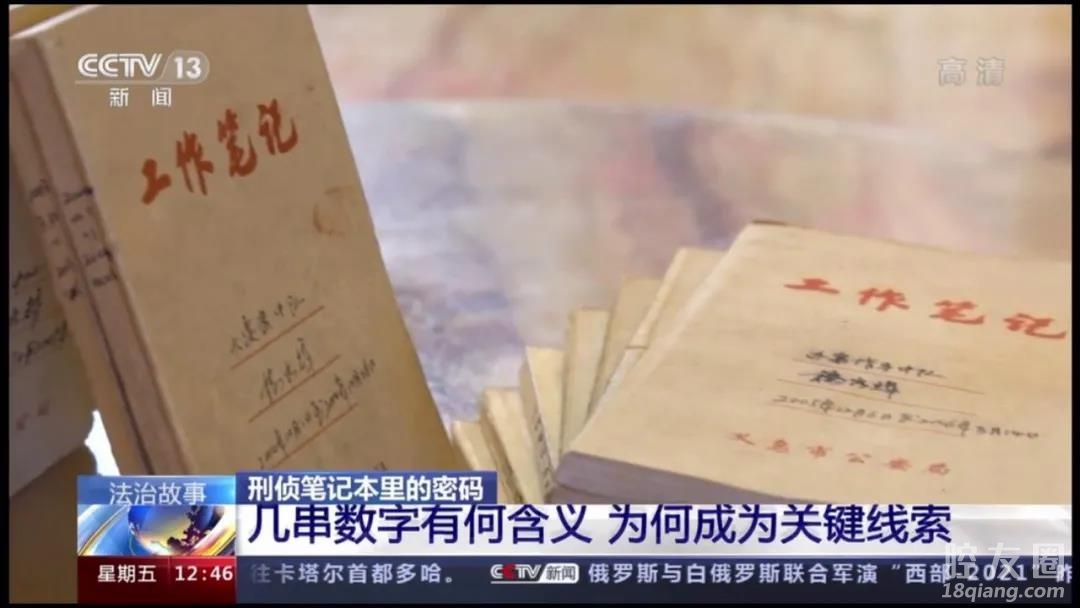 CCTV 13
新闻
高清
工作笔记
工作笔记
义乌市公安局
法治故事
刑侦笔记本里的密码
几串数字有何含义 为何成为关键线索
星期五 12:46 往卡塔尔首都多哈。 CCTV 新闻 俄罗斯与白俄罗斯联合军演“西部 2021”昨
腔友圈
18qiang.com